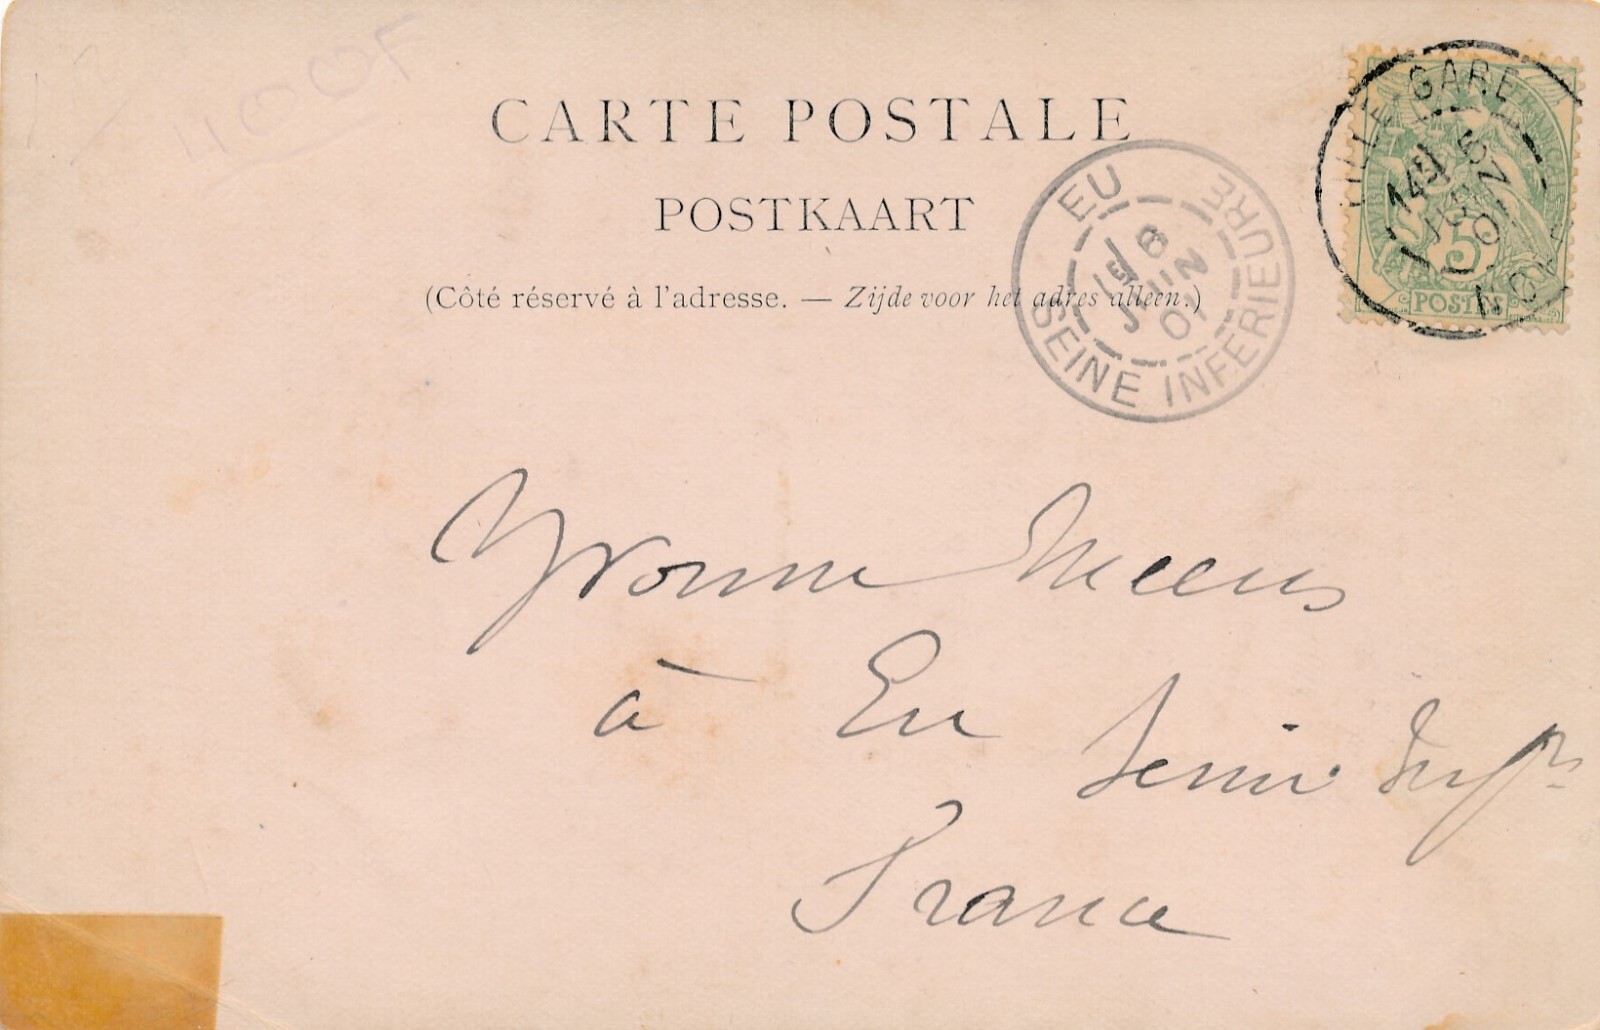 400F
CARTE POSTALE
POSTKAART
(Côté réservé à l'adresse. — Zijde voor het adres alleen.)
EU
SEINE INFERIEURE
6
JUIN
01
LILLE-GARE
NORD
5
JUIN
01
5
POSTES
Yvonne Meeus
à Eu Seine Infre
France